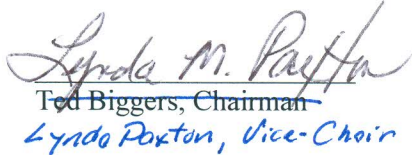 Lynda M. Paxton
Ted Biggers, Chairman
Lynda Paxton, Vice-Chair